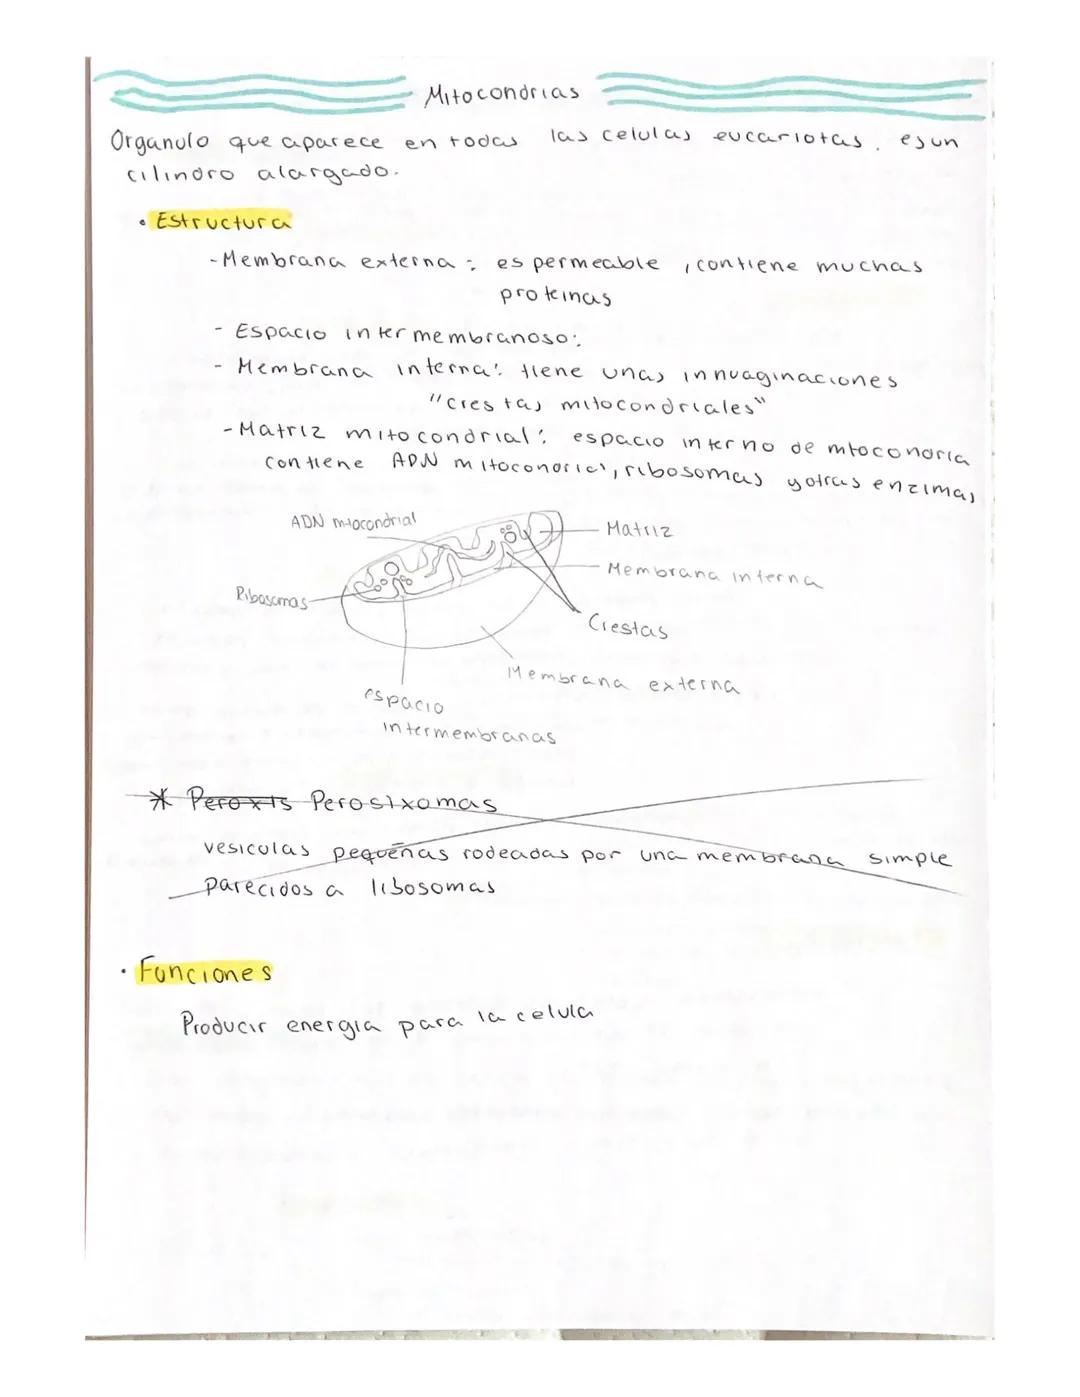 Mitocondrias
Organulo que aparece en todas las celulas eucariotas. es un
cilindro alargado.
• Estructura
- Membrana externa: es permeable, contiene muchas
proteinas
- Espacio intermembranoso:
- Membrana interna: tiene unas innvaginaciones
"crestas mitocondriales"
- Matriz mitocondrial: espacio interno de mtocondria
contiene ADN mitocondrial, ribosomas y otras enzimas
ADN mitocondrial
Matriz
Membrana interna
Ribosomas
Crestas
Membrana externa
espacio
intermembranas
* Peroxis Perosixomas
vesiculas pequeñas rodeadas por una membrana simple
parecidos a libosomas
• Funciones
Producir energia para la celula